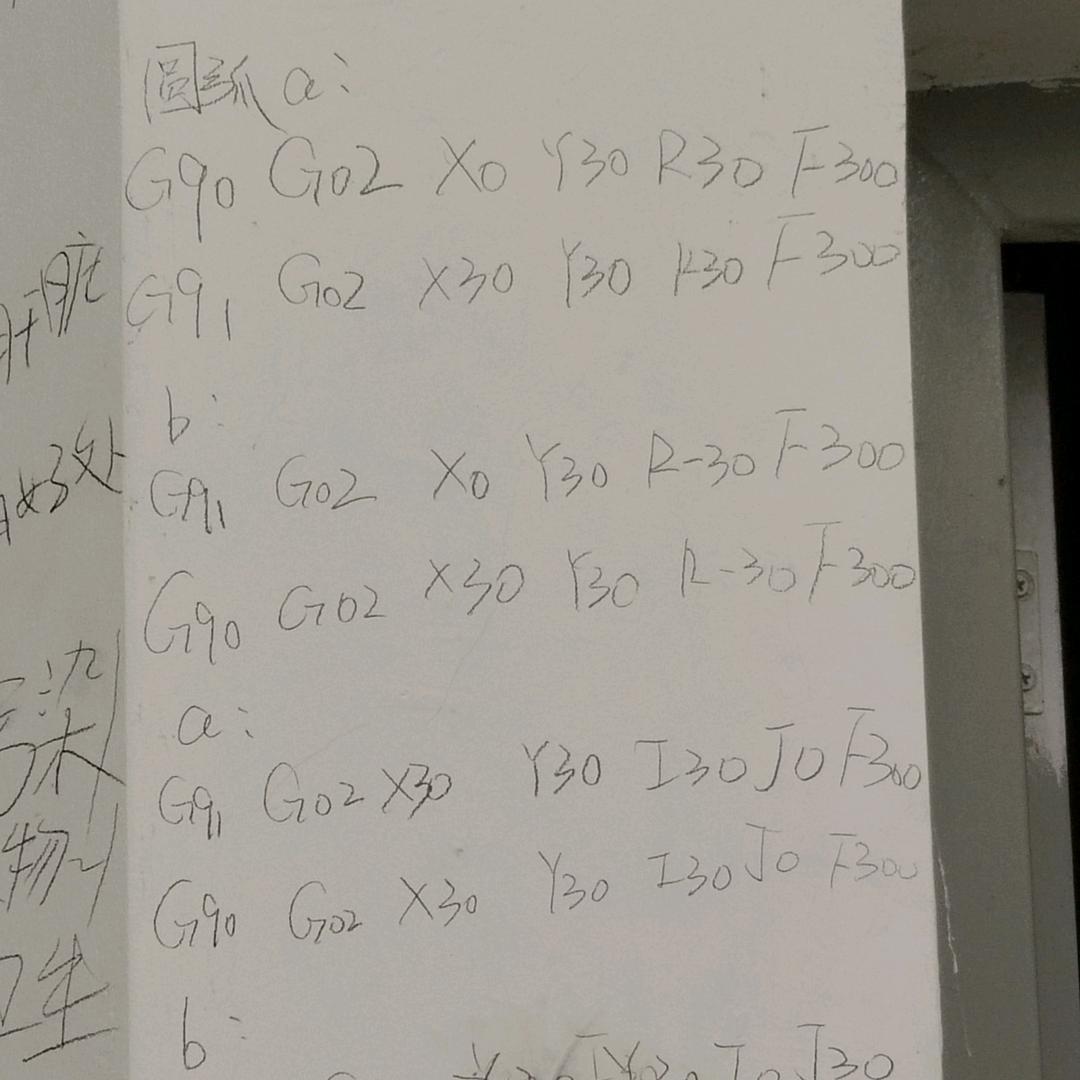 圆弧 a:
G90 G02 X0 Y30 R30 F300
G91 G02 X30 Y30 R30 F300
b:
G91 G02 X0 Y30 R-30 F300
G90 G02 X30 Y30 R-30 F300
a:
G91 G02 X30 Y30 I30 J0 F300
G90 G02 X30 Y30 I30 J0 F300
b:
I0 J30
肝脏
好处
染
物
卫生